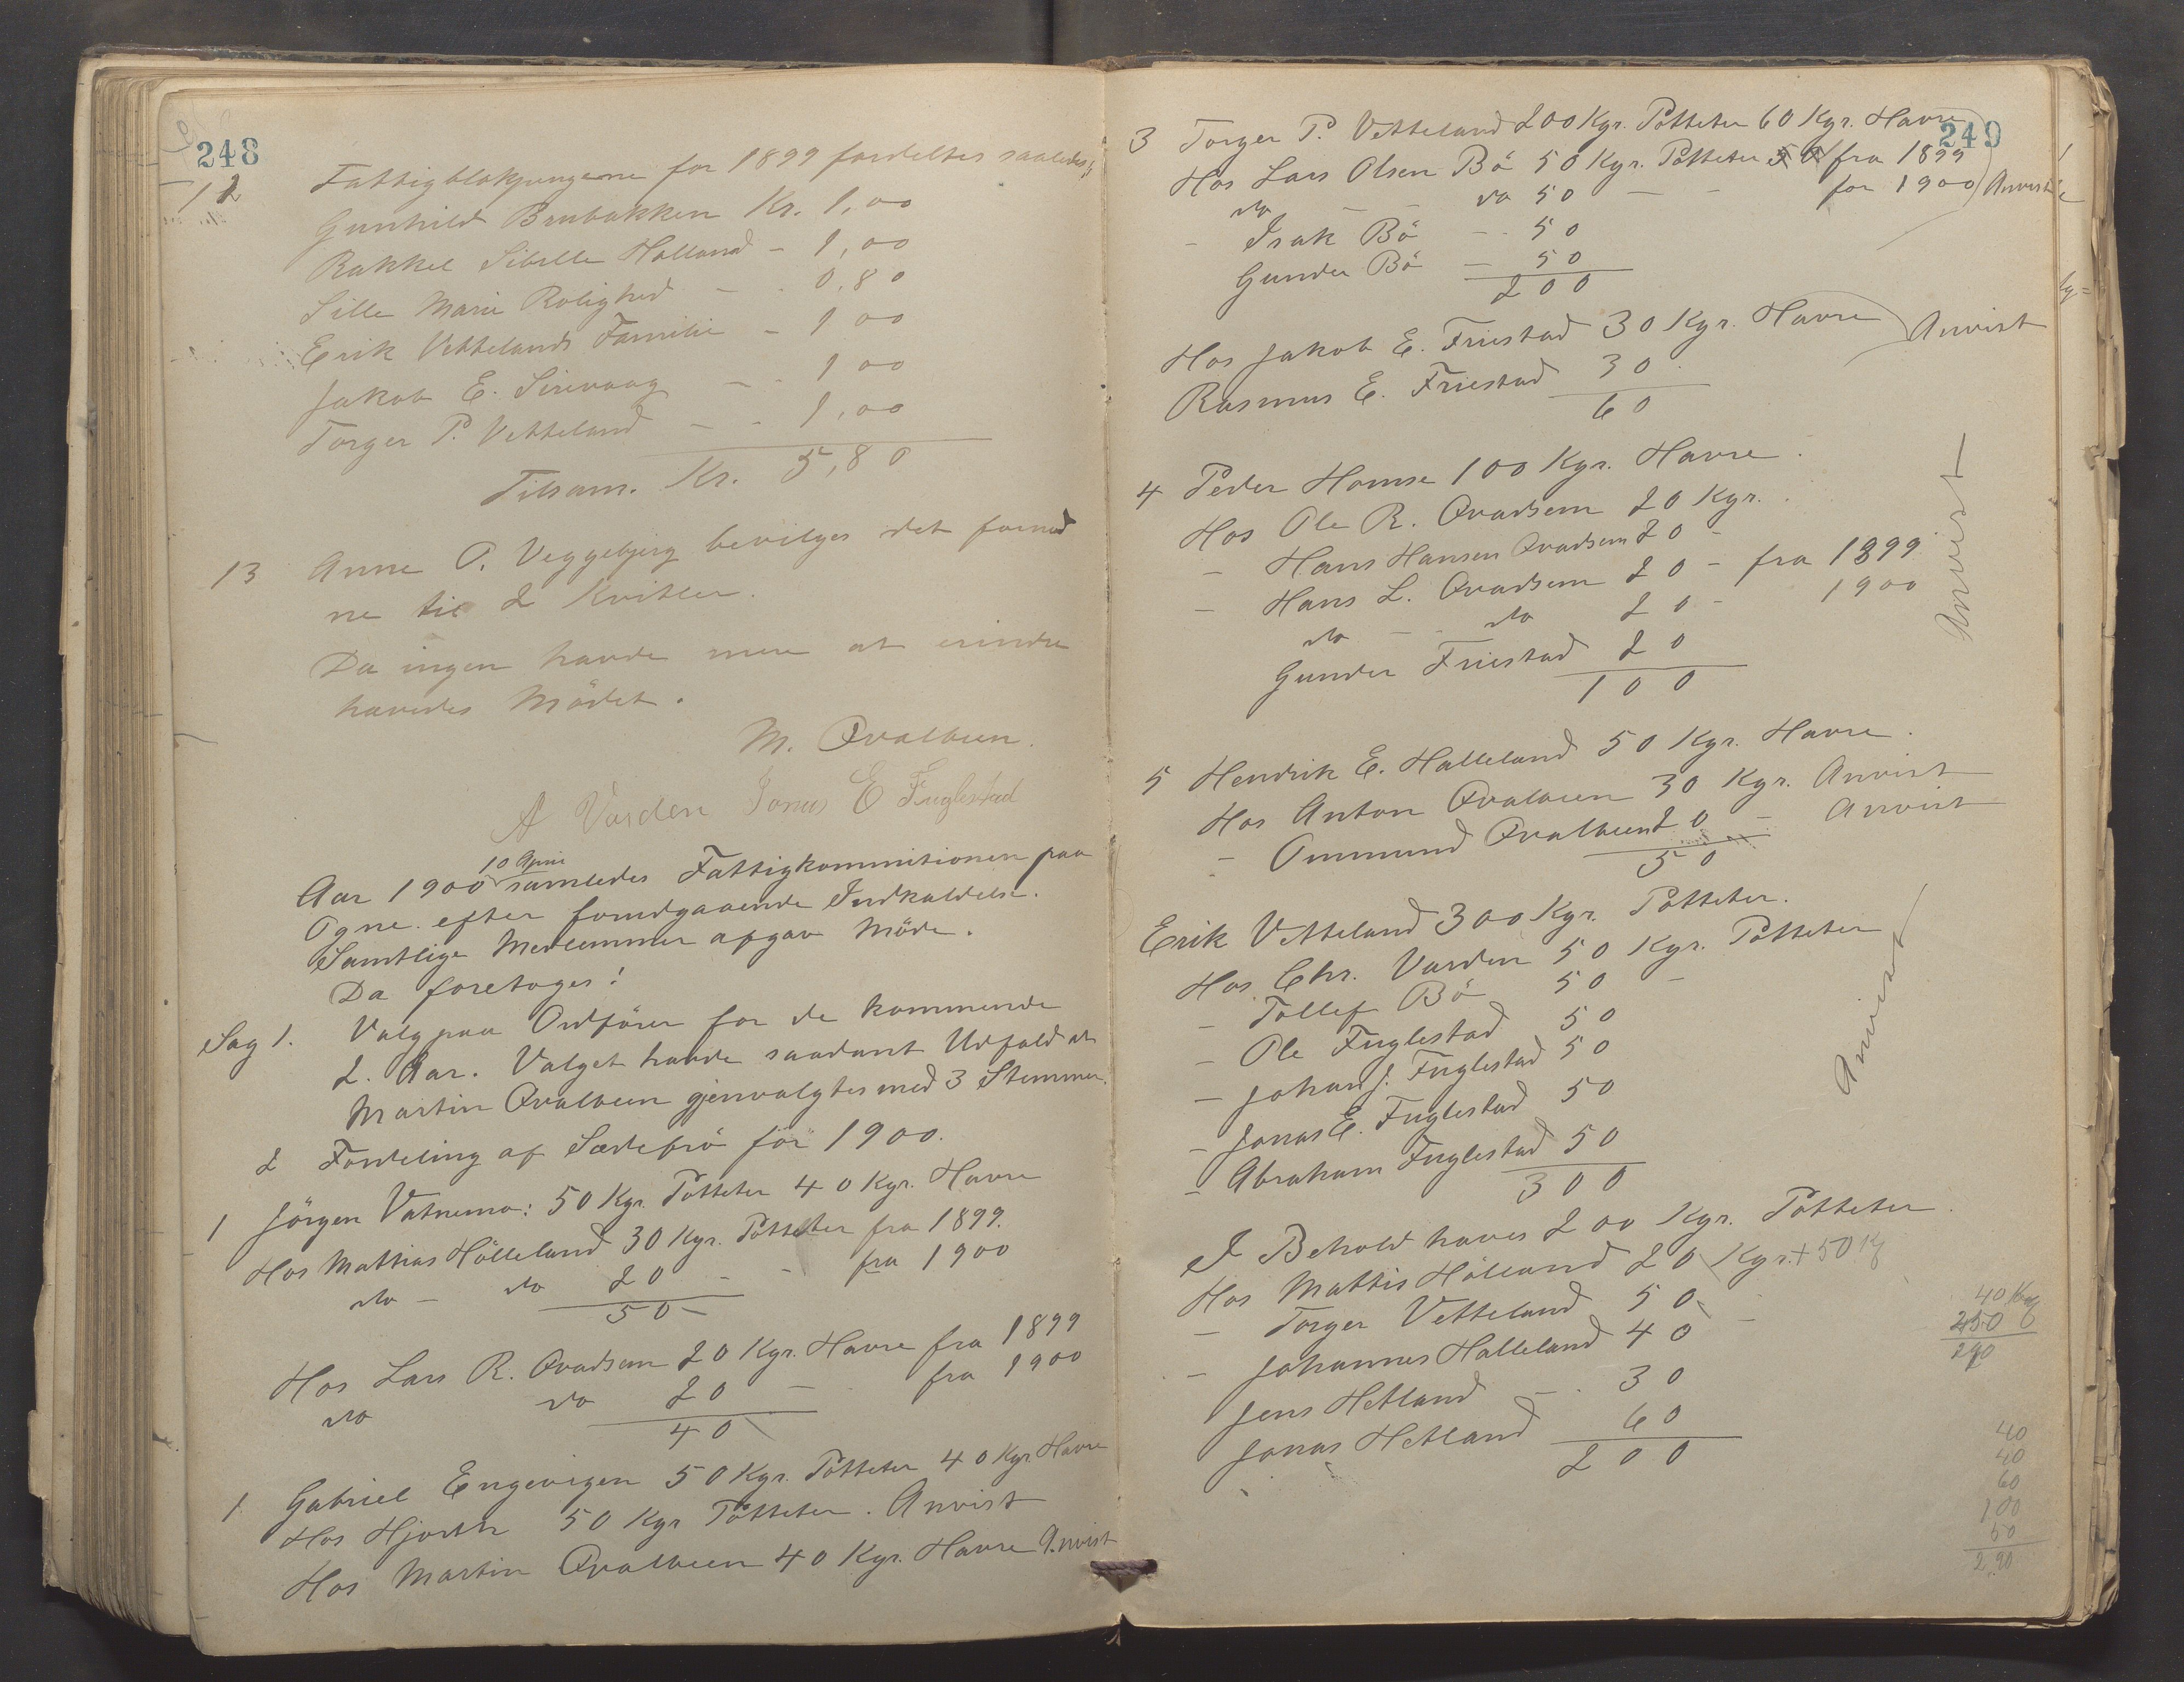 248
12 Fattigblokpengene for 1899 fordeltes saaledes;
Gunhild Brubakken Kr. 1,00
Rakkel Sibille Holland - 1,00
Sille Marie Rolighed - 0,80
Erik Vettelands Familie - 1 00
Jakob E. Sirevaag - 1 00
Torger P. Vetteland - 1,00
Tilsam. Kr. 5,80
13 Anne O. Veggebjerg bevilges det fornød
ne til 2 Kvitler.
Da ingen havde mere at erindre
hævedes Mödet.
M. Qvalbein.
A Varden Jonas E Fuglestad
10 April
Aar 1900 samledes Fattigkommitionen paa
Ogne efter forudgaaende Indkaldelse.
Samtlige Medlemmer afgav Möde.
Da foretoges:
Sag 1. Valg paa Ordförer for de kommende
2. Aar. Valget havde saadant Udfald at
Martin Qvalbein gjenvalgtes med 3 Stemmer.
2 Fordeling af Sædefrö för 1900.
1 Jörgen Vatnemo: 50 Kgr. Potteter 40 Kgr. Havre
Hos Mattias Hölleland 30 Kgr. Potteter fra 1899.
do - do 20 - - fra 1900
50 -
Hos Lars R. Qvadsem 20 Kgr. Havre fra 1899
do do 20 - fra 1900
40
1 Gabriel Engevigen 50 Kgr. Potteter 40 Kgr. Havre
Hos Hjorth 50 Kgr Potteter. Anvist
Hos Martin Qvalbein 40 Kgr. Havre Anvist
249
3 Torger P. Vetteland 200 Kgr. Potteter 60 Kgr. Havre
Hos Lars Olsen Bö 50 Kgr. Potteter fra 1899
do - - do 50 - - for 1900 Anvist
- Isak Bö - 50
Gunder Bö - 50
200
Hos Jakob E. Friestad 30 Kgr. Havre Anvist
Rasmus E. Friestad 30
60
4 Peder Homse 100 Kgr. Havre.
Hos Ole R. Qvadsem 20 Kgr.
- Hans Hansen Qvadsem 20 -
- Hans L. Qvadsem 20 - fra 1899
do - do 20 - 1900
Gunder Friestad 20
100
Anvist
5 Hendrik E. Halleland 50 Kgr. Havre.
Hos Anton Qvalbein 30 Kgr. Anvist
- Ommund Qvalbein 20 - Anvist
50
Erik Vetteland 300 Kgr. Potteter.
Hos Chr. Varden 50 Kgr. Potteter
- Tollef Bö 50 -
- Ole Fuglestad 50
- Johan J. Fuglestad 50
- Jonas E. Fuglestad 50
- Abraham Fuglestad 50
300
Anvist
I Behold haves 200 Kgr. Potteter.
Hos Mattis Hölland 20 Kgr. + 50 K
- Torger Vetteland 50 -
- Johannes Halleland 40
Jens Hetland - 30
Jonas Hetland 60
200
40
250
290
40
40
60
100
50
290